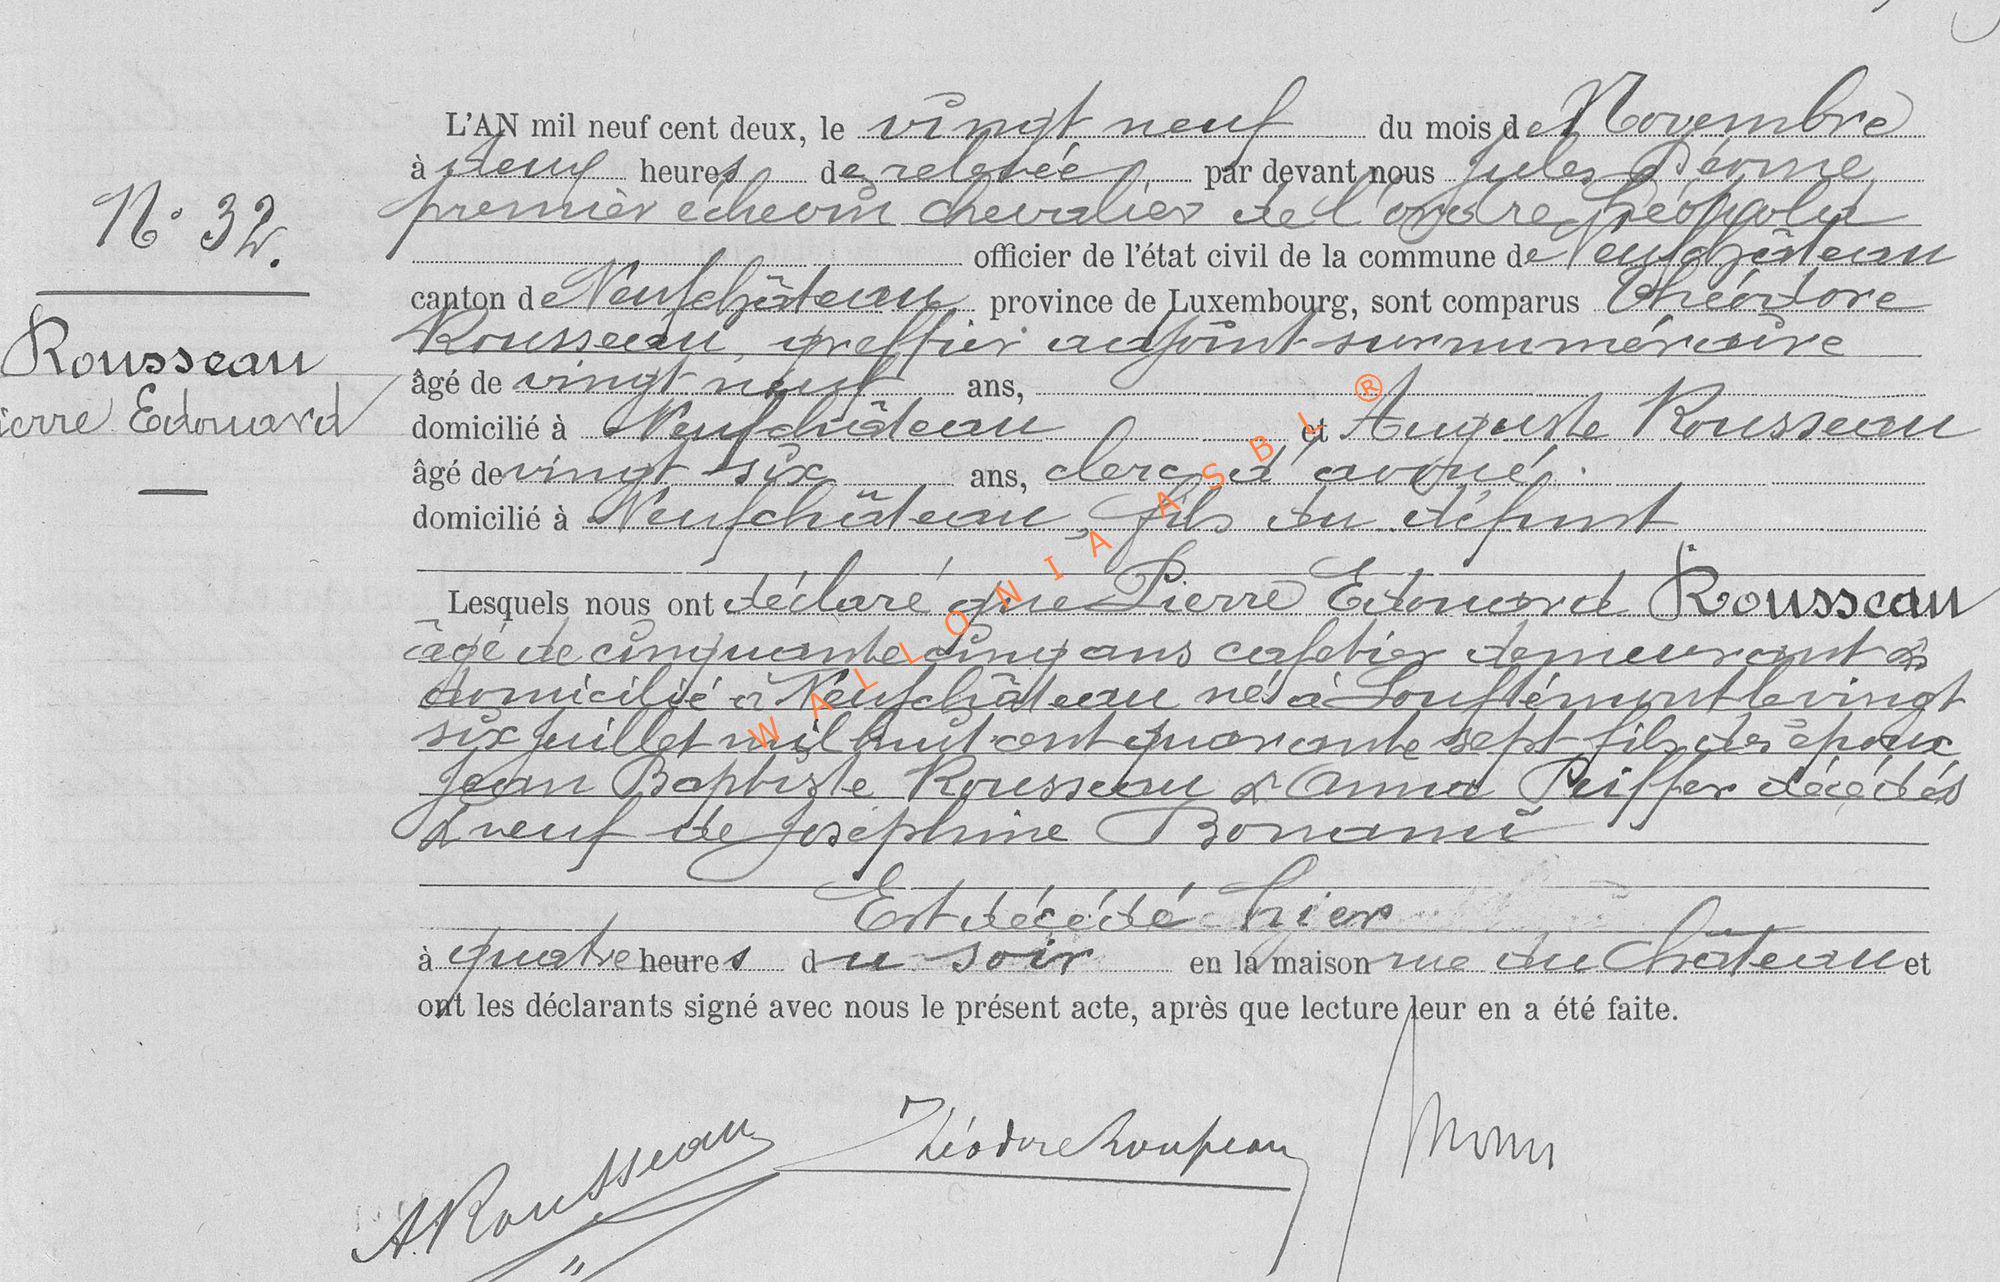 L'AN mil neuf cent deux, le vingt neuf du mois de Novembre
à neuf heures de relevée par devant nous Jules
premier échevin chevalier de l'ordre Léopold
officier de l'état civil de la commune de Neufchâteau
N° 32.
canton de Neufchâteau province de Luxembourg, sont comparus Théodore
Rousseau, greffier adjoint surnuméraire
Rousseau
ierre Edouard
âgé de vingt neuf ans,
domicilié à Neufchâteau et Auguste Rousseau
âgé de vingt six ans, clerc d'avoué.
domicilié à Neufchâteau, fils du défunt
Lesquels nous ont déclaré que Pierre Edouard Rousseau
âgé de cinquante cinq ans cafetier demeurant &
domicilié à Neufchâteau né à Louftémont le vingt
six juillet mil huit cent quarante sept fils des époux
Jean Baptiste Rousseau & Anna Peiffer décédés
& veuf de Joséphine
Est décédé hier
à quatre heures du soir en la maison rue du Château et
ont les déclarants signé avec nous le présent acte, après que lecture leur en a été faite.
A. Rousseau Théodore Rousseau
WALLONIA ASBL ®